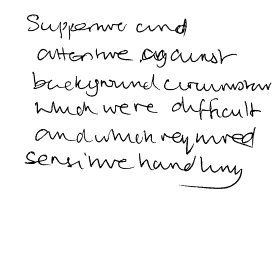 Supportive and
attentive against
background circumstances
which were difficult
and which required
sensitive handling